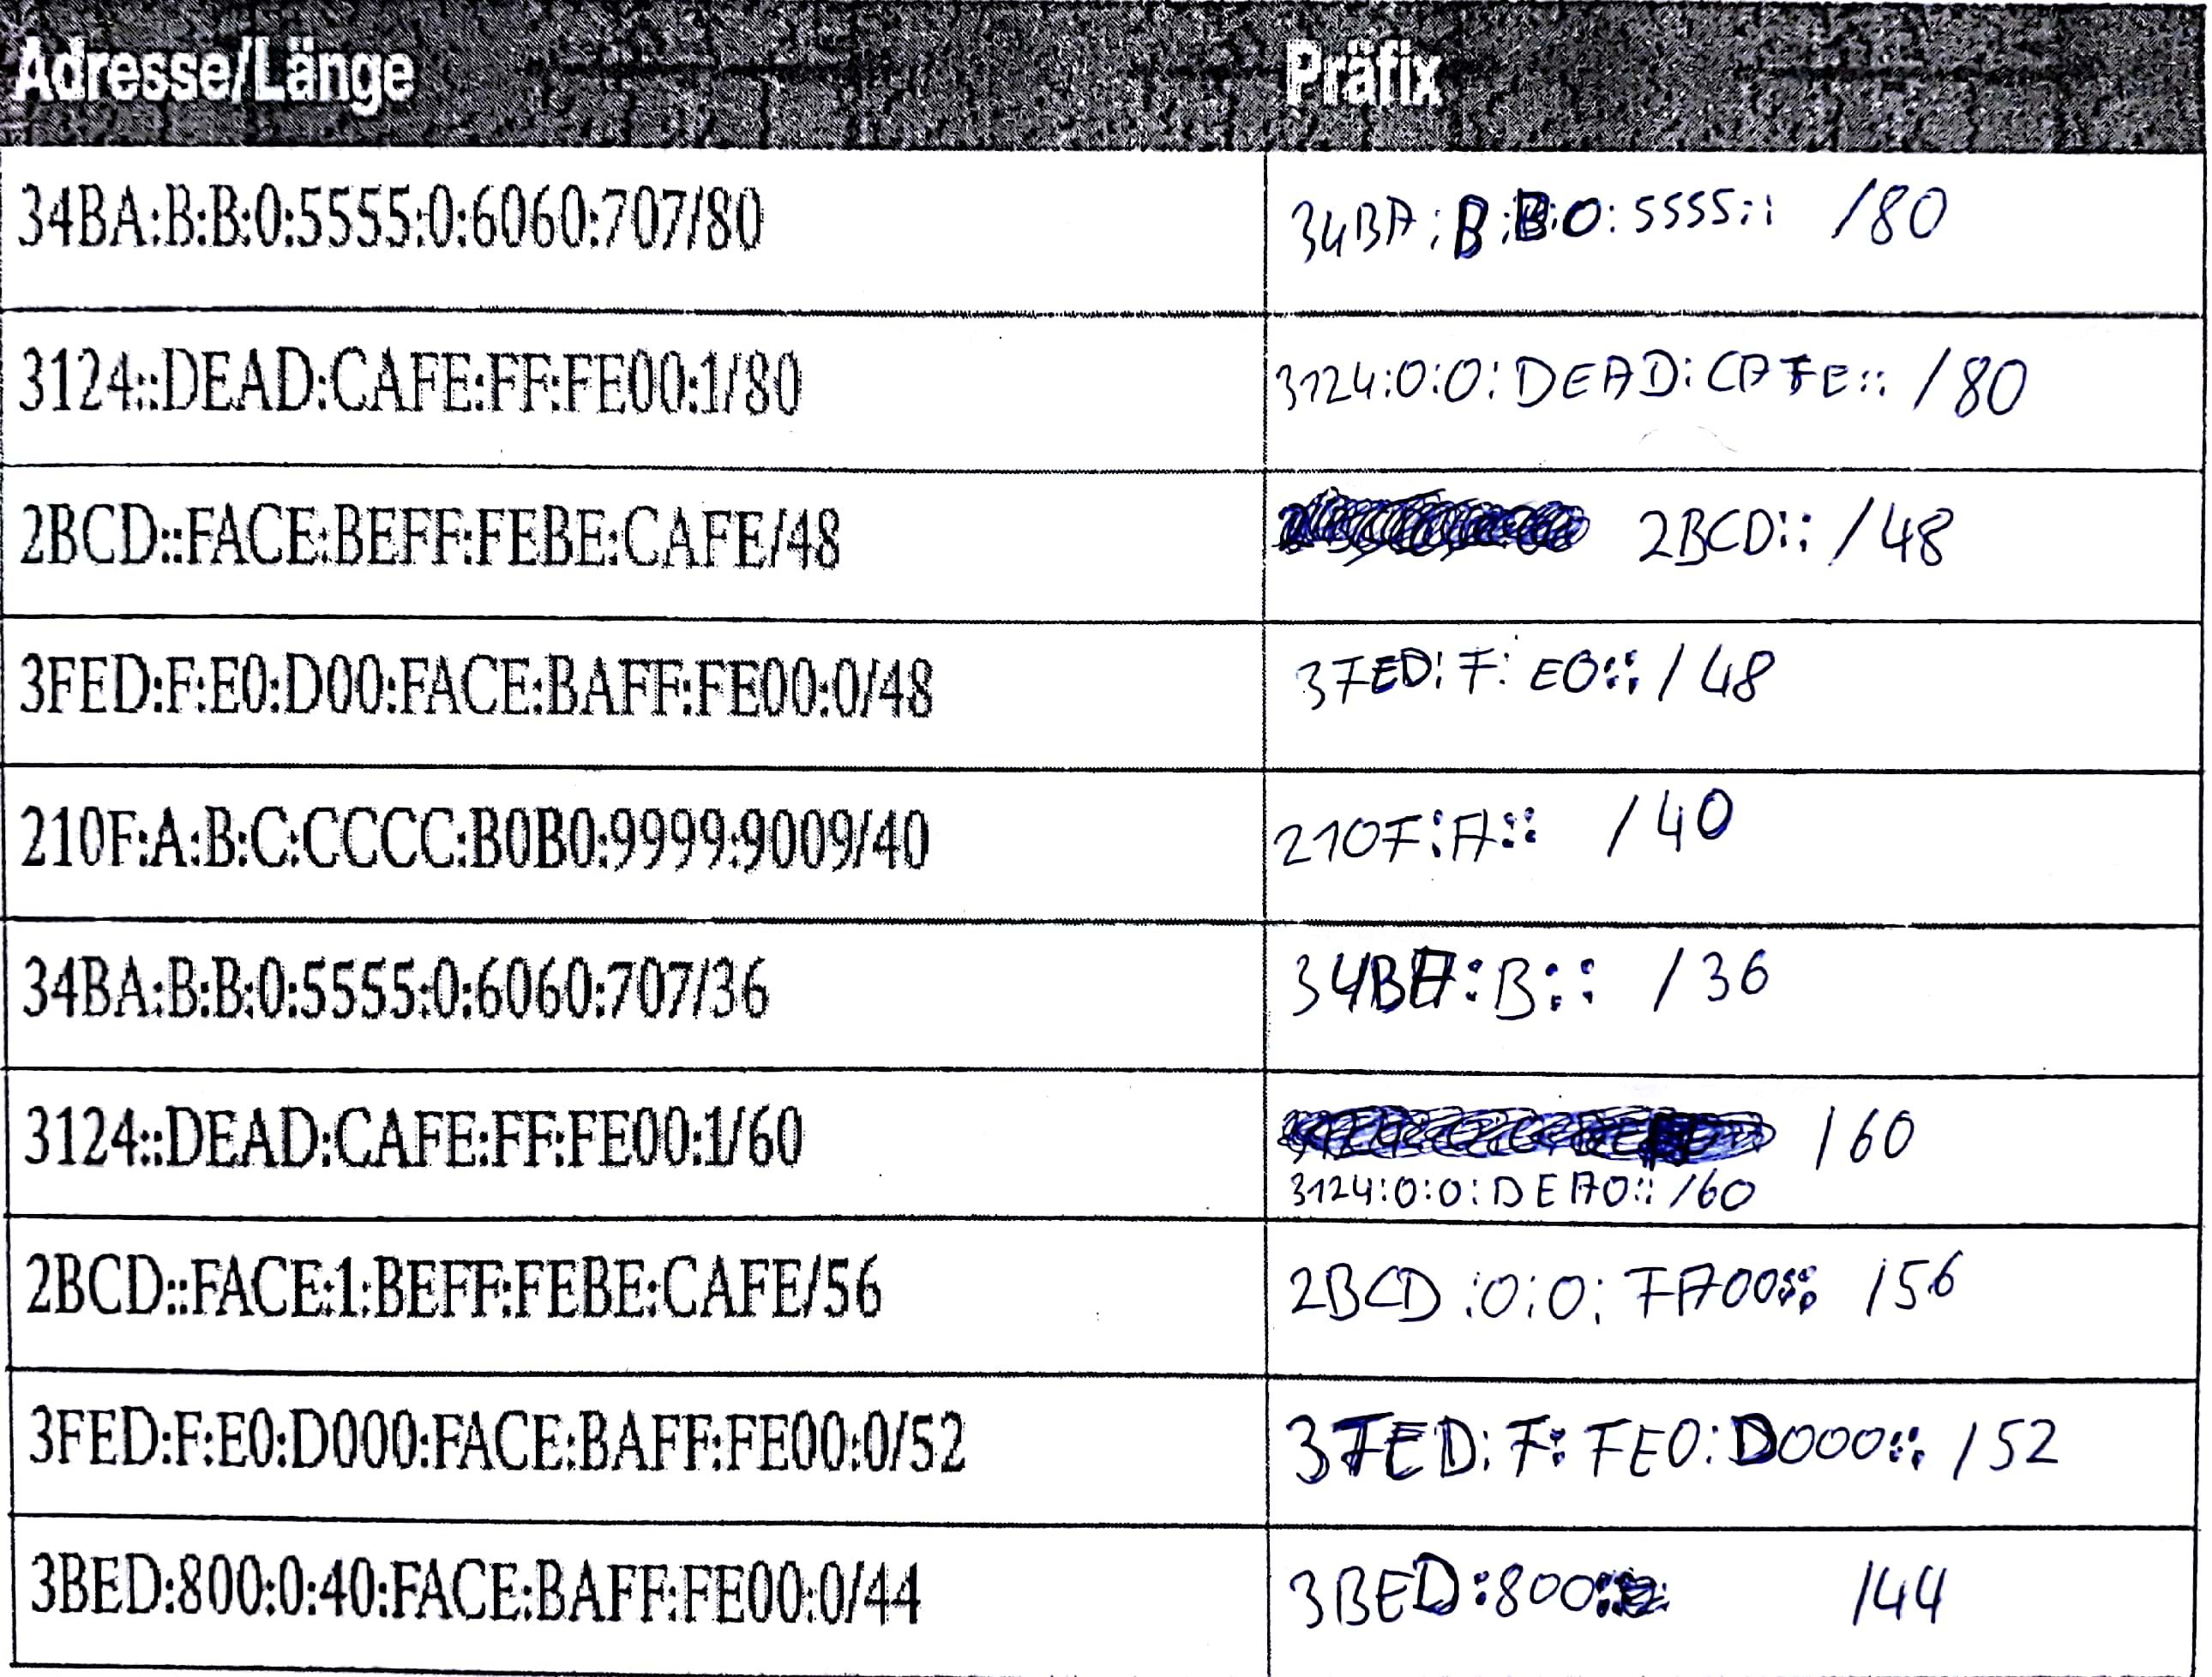 Adresse/Länge Präfix
34BA:B:B:0:5555:0:6060:707/80 34BA:B:B:0:5555:: /80
3124::DEAD:CAFE:FF:FE00:1/80 3124:0:0:DEAD:CAFE:: /80
2BCD::FACE:BEFF:FEBE:CAFE/48 2BCD:: /48
3FED:F:E0:D00:FACE:BAFF:FE00:0/48 3FED:F:E0::/48
210F:A:B:C:CCCC:B0B0:9999:9009/40 210F:A:: /40
34BA:B:B:0:5555:0:6060:707/36 34BA:B:: /36
3124::DEAD:CAFE:FF:FE00:1/60 /60
3124:0:0:DEAD:: /60
2BCD::FACE:1:BEFF:FEBE:CAFE/56 2BCD:0:0:FA00:: /56
3FED:F:E0:D000:FACE:BAFF:FE00:0/52 3FED:F:FE0:D000:: /52
3BED:800:0:40:FACE:BAFF:FE00:0/44 3BED:800:: /44